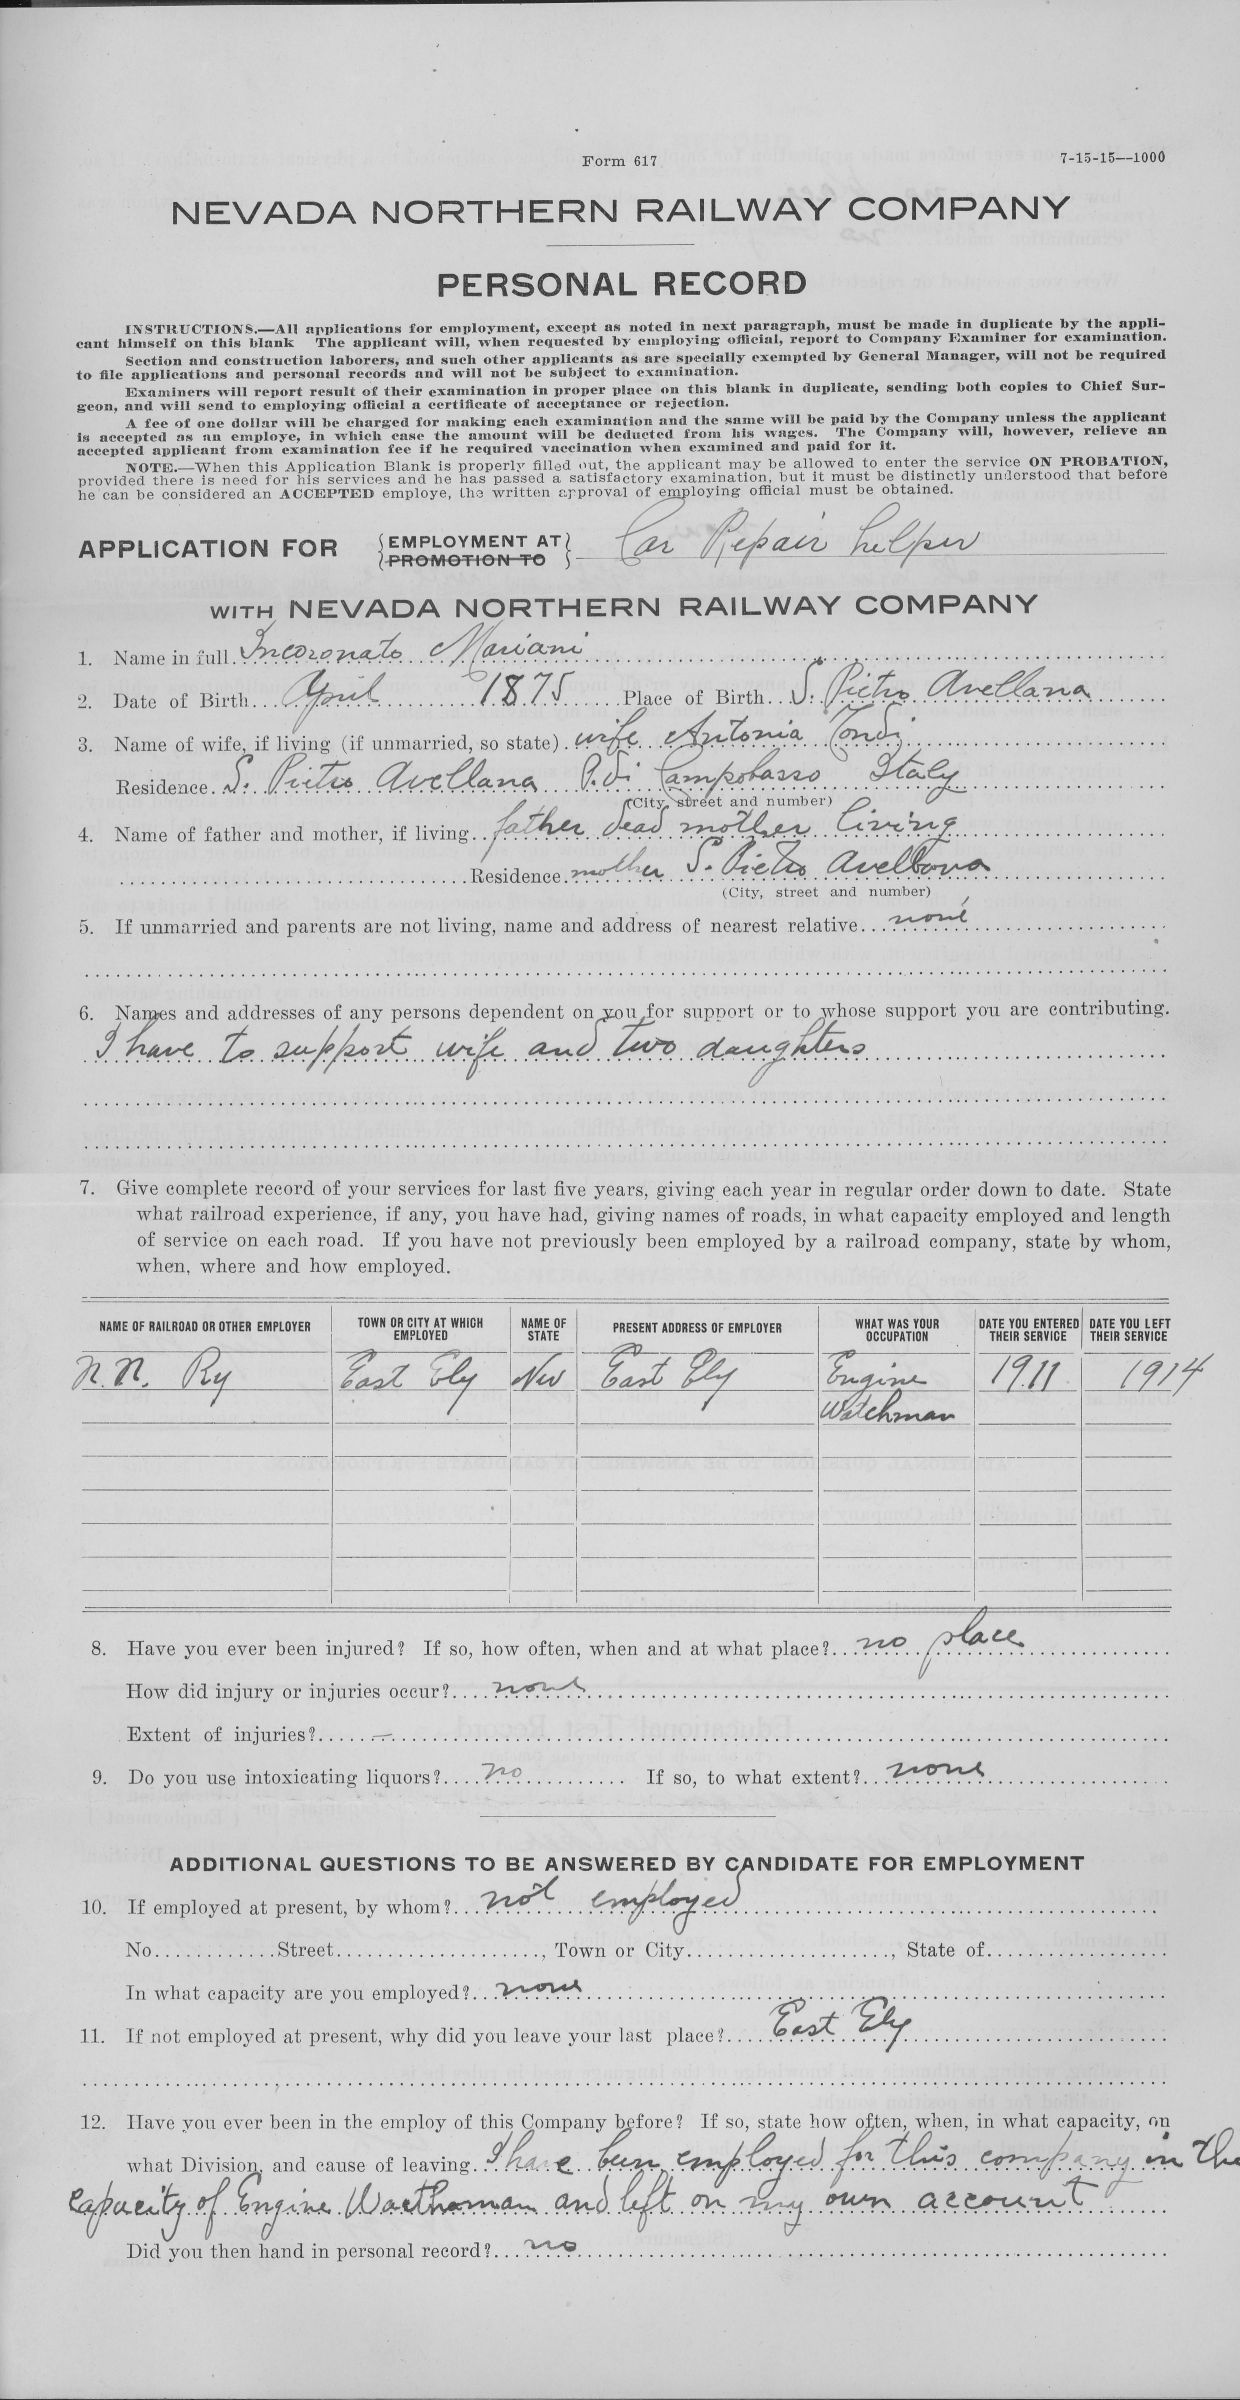 Form 617
7-15-15—1000
NEVADA NORTHERN RAILWAY COMPANY
PERSONAL RECORD
INSTRUCTIONS.—All applications for employment, except as noted in next paragraph, must be made in duplicate by the appli-
cant himself on this blank The applicant will, when requested by employing official, report to Company Examiner for examination.
Section and construction laborers, and such other applicants as are specially exempted by General Manager, will not be required
to file applications and personal records and will not be subject to examination.
Examiners will report result of their examination in proper place on this blank in duplicate, sending both copies to Chief Sur-
geon, and will send to employing official a certificate of acceptance or rejection.
A fee of one dollar will be charged for making each examination and the same will be paid by the Company unless the applicant
is accepted as an employe, in which case the amount will be deducted from his wages. The Company will, however, relieve an
accepted applicant from examination fee if he required vaccination when examined and paid for it.
NOTE.—When this Application Blank is properly filled out, the applicant may be allowed to enter the service ON PROBATION,
provided there is need for his services and he has passed a satisfactory examination, but it must be distinctly understood that before
he can be considered an ACCEPTED employe, the written approval of employing official must be obtained.
APPLICATION FOR {EMPLOYMENT AT} Car Repair helper
{PROMOTION TO}
WITH NEVADA NORTHERN RAILWAY COMPANY
1. Name in full. Incoronato Mariani
2. Date of Birth April 1875 Place of Birth S. Pietro Avellana
3. Name of wife, if living (if unmarried, so state). wife Antonia Tondi
Residence. S. Pietro Avellana P.di Campobasso Italy
(City, street and number)
4. Name of father and mother, if living. father dead mother living
Residence. mother S. Pietro Avellana
(City, street and number)
5. If unmarried and parents are not living, name and address of nearest relative. none
6. Names and addresses of any persons dependent on you for support or to whose support you are contributing.
I have to support wife and two daughters
7. Give complete record of your services for last five years, giving each year in regular order down to date. State
what railroad experience, if any, you have had, giving names of roads, in what capacity employed and length
of service on each road. If you have not previously been employed by a railroad company, state by whom,
when, where and how employed.
NAME OF RAILROAD OR OTHER EMPLOYER TOWN OR CITY AT WHICH EMPLOYED NAME OF STATE PRESENT ADDRESS OF EMPLOYER WHAT WAS YOUR OCCUPATION DATE YOU ENTERED THEIR SERVICE DATE YOU LEFT THEIR SERVICE
N.N. Ry East Ely Nev East Ely Engine 1911 1914
Watchman
8. Have you ever been injured? If so, how often, when and at what place? no place
How did injury or injuries occur? none
Extent of injuries? —
9. Do you use intoxicating liquors? no If so, to what extent? none
ADDITIONAL QUESTIONS TO BE ANSWERED BY CANDIDATE FOR EMPLOYMENT
10. If employed at present, by whom? not employed
No. Street, Town or City, State of
In what capacity are you employed? none
11. If not employed at present, why did you leave your last place? East Ely
12. Have you ever been in the employ of this Company before? If so, state how often, when, in what capacity, on
what Division, and cause of leaving. I have been employed for this company in the
capacity of Engine Wacthman and left on my own account
Did you then hand in personal record? no